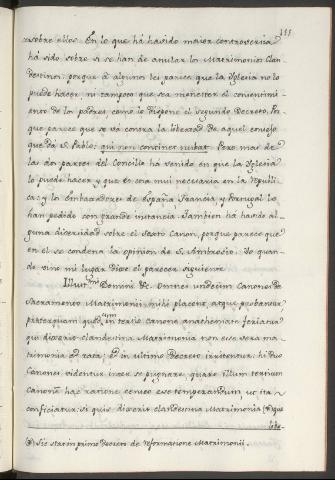 111
sobre ellos. En lo que há havido maior controversia
há sido sobre si se han de anular los Matrimonios Clan-
destinos: porque á algunos les parece que la Iglesia no lo
puede hacer, ni tampoco que sea menester el consentimi-
ento de los padres, como lo dispone el segundo Decreto. Por
que parece que se vá contra la libertad de aquel consejo
que da S. Pablo: qui non continet nubat. Pero mas de
las dos partes del Concilio há venido en que la Iglesia
lo puede hacer, y que es cosa mui necesaria en la Republi-
ca: y los Embaxadores de España Francia y Portugal lo
han pedido con grande instancia. Tambien há havido al-
guna diversidad sobre el sexto Canon, porque parece que
en el se condena la opinion de S. Ambrosio. Yo quan-
do vino mi lugar dixe el parecer siguiente.
Illust.mi Domini &c. Omnes undecim Canones de
Sacramento Matrimonii mihi placent, atque probantur
praeterquam quod cum tertio canone anathemate feriatur
qui dixerit clandestina Matrimonia non esse vera ma-
trimonia et rata; et in ultimo Decreto irritentur, hi duo
Canones videntur inter se pugnare; quare illum tertium
Canonem hac ratione censeo esse temperandum, ut ita
conficiatur. Si quis dixerit clandestina Matrimonia (*) que
libe-
(*) Sic statim primo Decreto de reformatione Matrimonii.